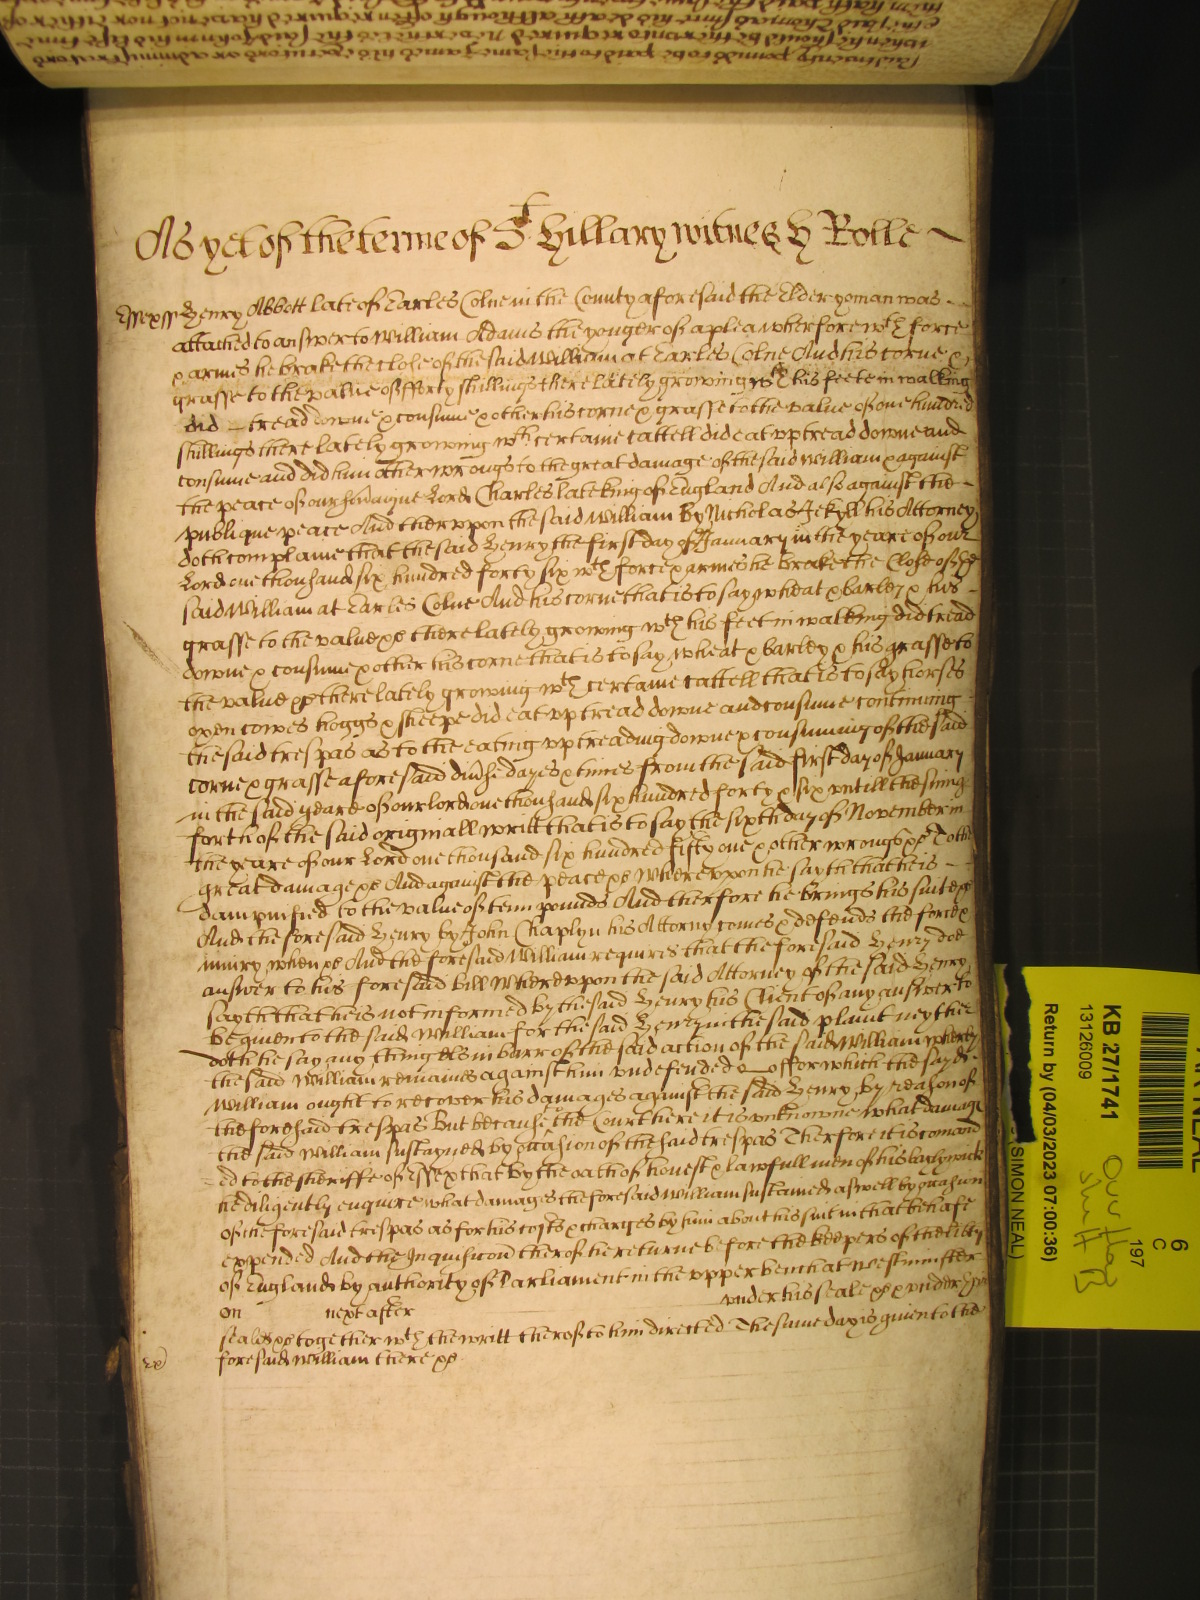 said twenty pounds to be paid to the same James his executors or administrators
when he should be therunto required Neverthelesse the said John in his life time
As yet of the terme of St Hillary witnes H Rolle
Essex ss Henry Abbott late of Earles Colne in the County aforesaid the Elder yoman was
attached to answer to William Adams the yonger of a plea wherfore wth force
& armes he brake the close of the said William at Earles Colne And his corne &
grasse to the value of fforty shillings there lately growing wth his feete in walking
did tread downe & consume & other his corne & grasse to the value of one hundred
shillings there lately growing wth certaine cattell did eat up tread downe and
consume and did him other wrongs to the great damage of the said William & against
the peace of our Lord Charles late King of England And also against the
publique peace And therupon the said William By Nicholas Jekyll his Attorney
doth complaine that the said Henry the first day of January in the yeare of our
Lord one thousand six hundred forty six wth force & armes he brake the Close of the
said William at Earles Colne And his corne that is to say wheat & barley & his
grasse to the value &c there lately growing wth his feet in walking did tread
downe & consume & other his corne that is to say wheat & barley & his grasse to
the value &c there lately growing wth certaine cattell that is to say horses
oxen cowes hoggs & sheepe did eat up tread downe and consume continuing
the said trespas as to the eating up treading downe & consuming of the said
corne & grasse aforesaid divse dayes & times from the said first day of January
in the said yeare of our Lord one thousand six hundred forty & six untill the suing
forth of the said originall writt that is to say the sixth day of November in
the yeare of our Lord one thousand six hundred fifty one & other wrongs &c To the
great damage &c And against the peace &c Whereupon he sayth that he is
dampnified to the value of tenn pounds And therfore he brings his suite &c
And the foresaid Henry by John Chaplyn his Attorny comes & defends the force &
iniury when &c And the foresaid William requires that the foresaid Henry doe
answer to his foresaid bill Whereupon the said Attorney of the said Henry
sayth that he is not informed by the said Henry his Client of any answer to
be given to the said William for the said Henry in the said plaint neyther
doth he say any thing els in barr of the said action of the said William wherby
the said William remaines against him undefended for which the sayd
William ought to recover his damages against the said Henry by reason of
the foresaid trespas But because the Court here it is unknowne what damage
the said William sustayned by occasion of the said trespas Therfore it is comand
ed to the sheriffe of Essex that by the oath of honest & lawfull men of his baylywick
he diligently enquire what damages the foresaid William sustained aswell by occasion
of the foresaid trespas as for his costs & charges by him about his suit in that behafe
expended And the Inquisicon therof he returne before the keepers of the liberty
of England by authority of Parliament in the upper bench at Westminster
on next after under his seale &c & under the
seales &c together wth the writt therof to him directed The same day is given to the
foresaid William there &c
KB 27/1741
13126009
Return by (04/03/2023 07:00:36)
(SIMON NEAL)
6
C
197